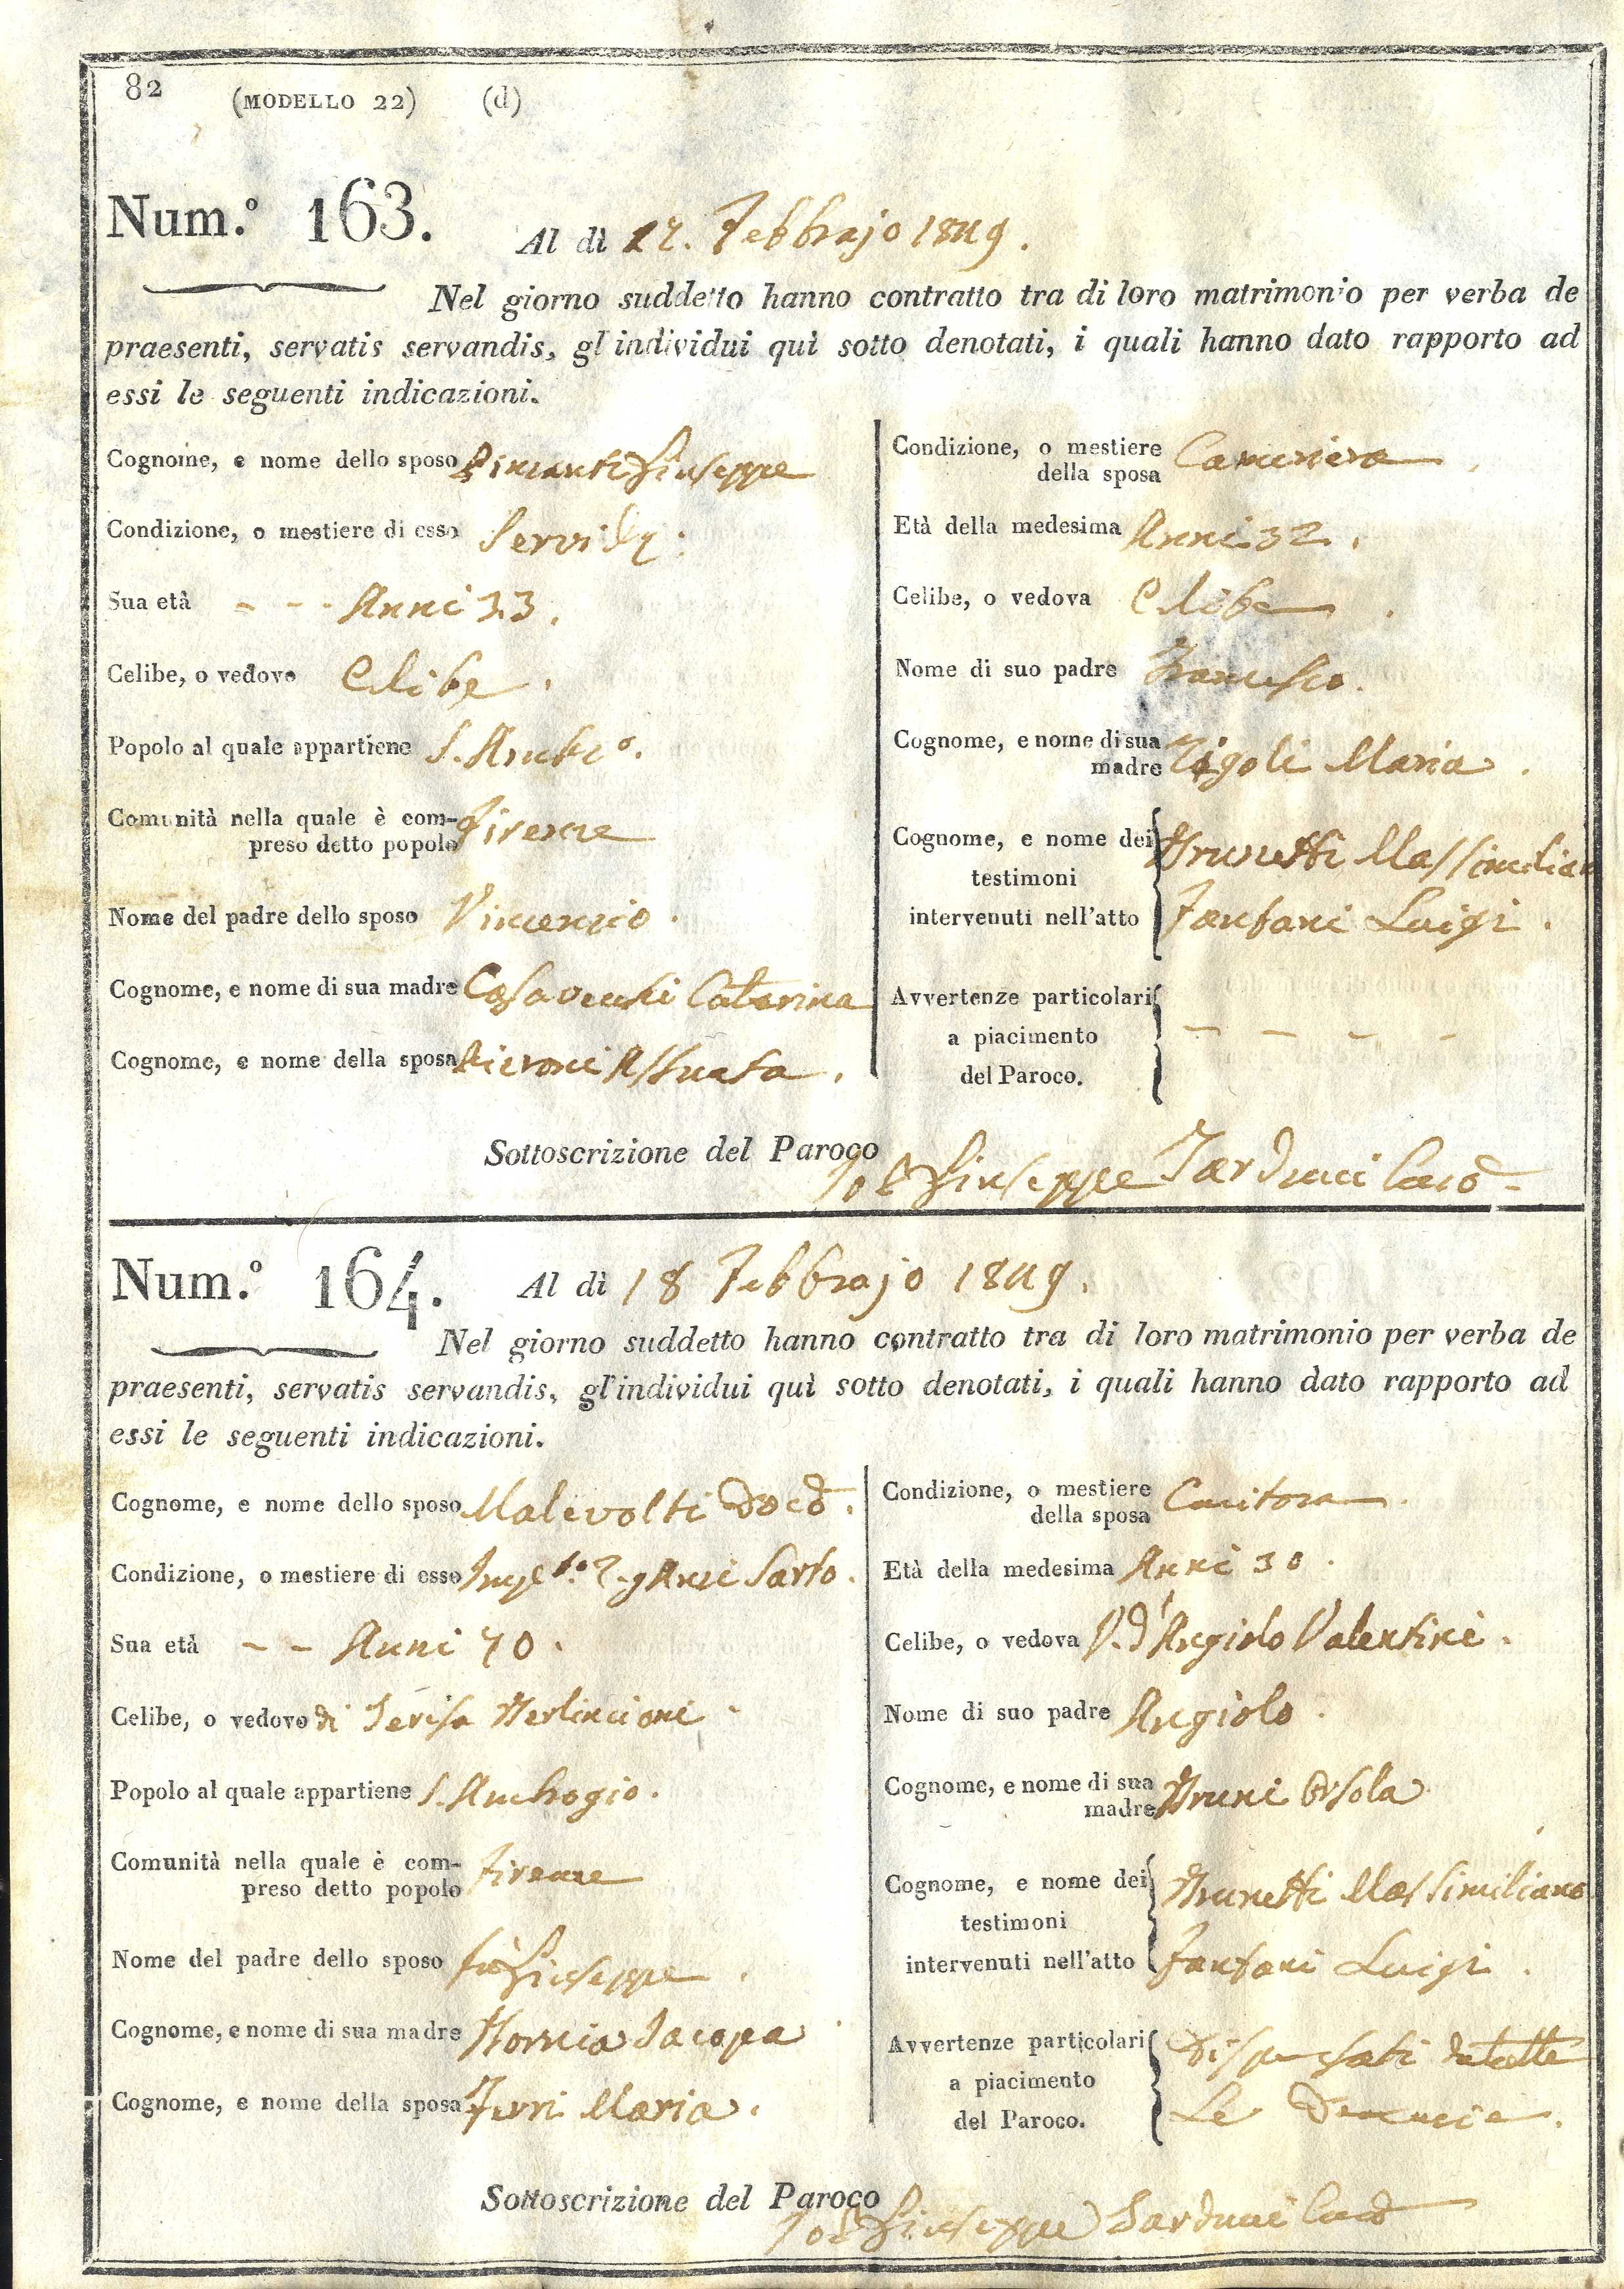 82 (MODELLO 22) (d)
Num.º 163. Al dì 12. Febbrajo 1849.
Nel giorno suddetto hanno contratto tra di loro matrimonio per verba de
praesenti, servatis servandis, gl'individui quì sotto denotati, i quali hanno dato rapporto ad
essi le seguenti indicazioni.
Cognome, e nome dello sposo Giuseppe
Condizione, o mestiere di esso
Sua età - - - Anni 33.
Celibe, o vedovo Celibe.
Popolo al quale appartiene S. Amb.º.
Comunità nella quale è com-
preso detto popolo Firenze
Nome del padre dello sposo Vincenzio.
Cognome, e nome di sua madre Casavecchi Caterina
Cognome, e nome della sposa Pieroni Assunta.
Condizione, o mestiere
della sposa Cameriera
Età della medesima Anni 32.
Celibe, o vedova Celibe.
Nome di suo padre Francesco.
Cognome, e nome di sua
madre Rigoli Maria.
Cognome, e nome dei Brunetti Massimilian
testimoni
intervenuti nell'atto Fanfani Luigi.
Avvertenze particolari
a piacimento - - - -
del Paroco.
Sottoscrizione del Paroco
Giuseppe Tarducci
Num.º 164. Al dì 18 Febbrajo 1849.
Nel giorno suddetto hanno contratto tra di loro matrimonio per verba de
praesenti, servatis servandis, gl'individui quì sotto denotati, i quali hanno dato rapporto ad
essi le seguenti indicazioni.
Cognome, e nome dello sposo Malevolti
Condizione, o mestiere di esso Sarto.
Sua età - - Anni 40.
Celibe, o vedovo di Teresa Berlincioni.
Popolo al quale appartiene S. Ambrogio.
Comunità nella quale è com-
preso detto popolo Firenze
Nome del padre dello sposo fù Giuseppe.
Cognome, e nome di sua madre Jacopa
Cognome, e nome della sposa Ferri Maria.
Condizione, o mestiere
della sposa Cucitora.
Età della medesima Anni 30.
Celibe, o vedova V. d'Angiolo Valentini.
Nome di suo padre Angiolo.
Cognome, e nome di sua
madre Bruni Orsola
Cognome, e nome dei Brunetti Massimiliano
testimoni
intervenuti nell'atto Fanfani Luigi.
Avvertenze particolari Dispensati da tutte
a piacimento
del Paroco. Le Denuncie.
Sottoscrizione del Paroco
Giuseppe Tarducci